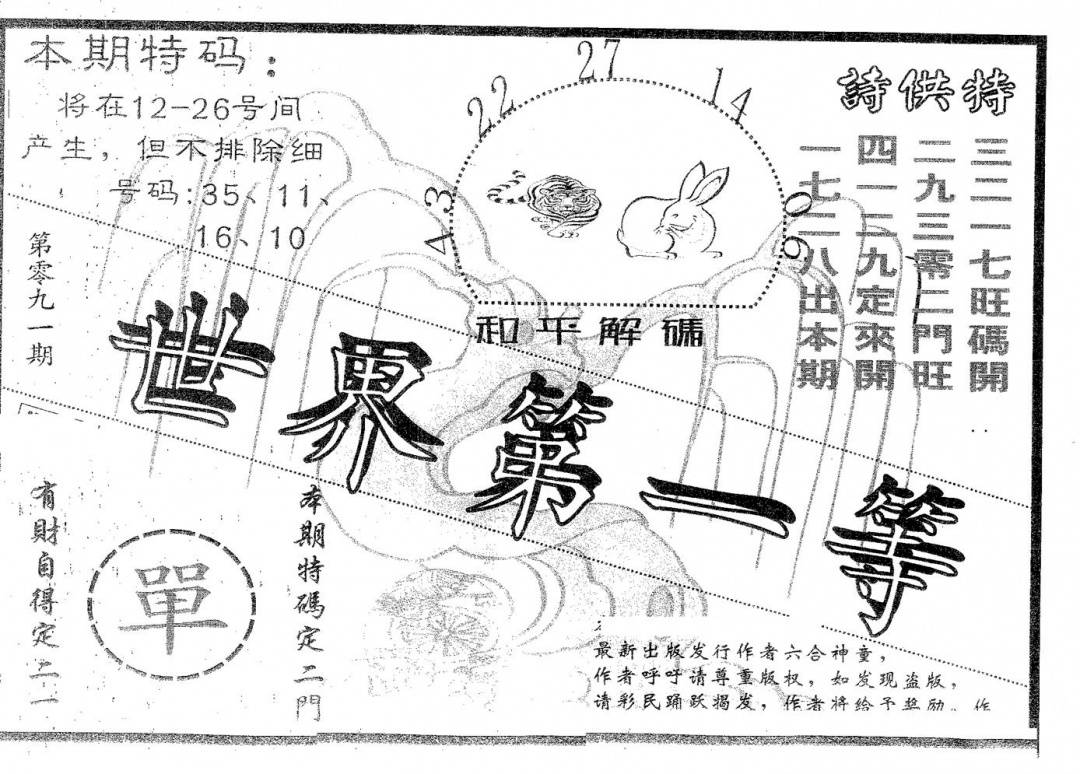 本期特码：
将在12-26号间
产生，但不排除细
号码:35、11、
16、10
第零九一期
43
22
27
14
09
和平解碼
特供詩
三二一七旺碼開
二九三零二門旺
四一二九定來開
一七二八出本期
世界第一等
有財自得定二一
單
本期特碼定二門
最新出版发行作者六合神童，
作者呼吁请尊重版权，如发现盗版，
请彩民踊跃揭发，作者将给予奖励。作